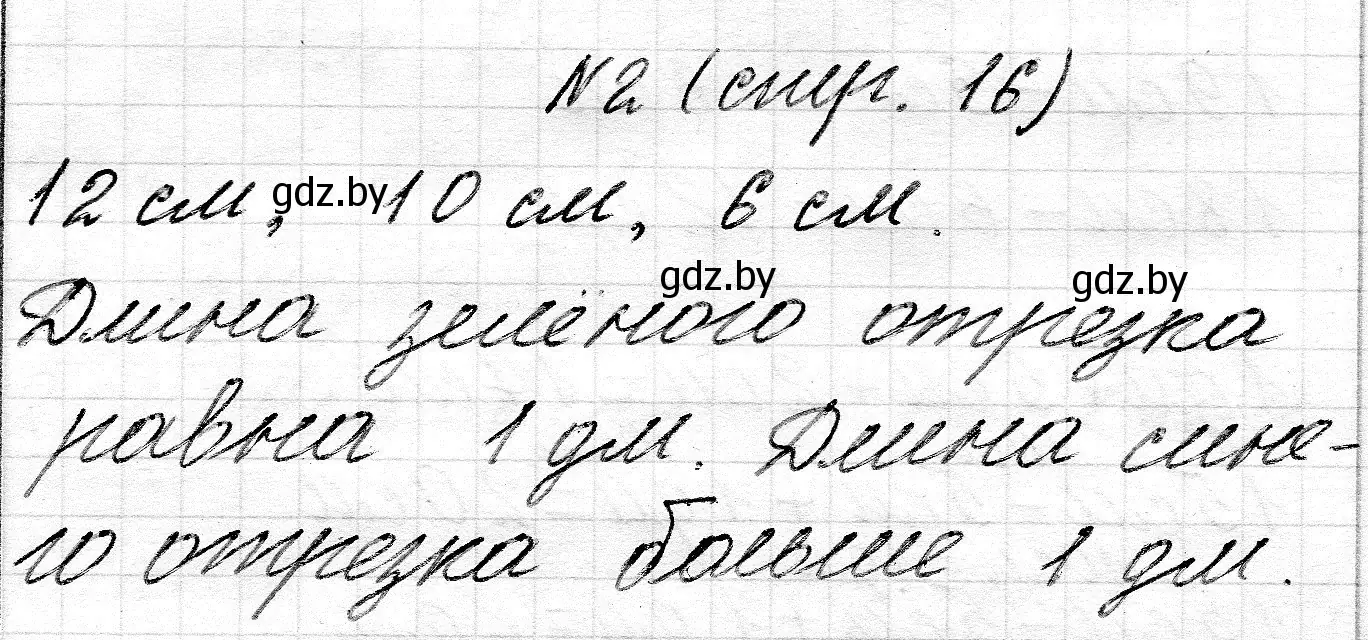 №2 (стр. 16)
12 см, 10 см, 6 см.
gdz.by
Длина зелёного отрезка
gdz.by gdz.by
равна 1 дм. Длина сине-
го отрезка больше 1 дм.